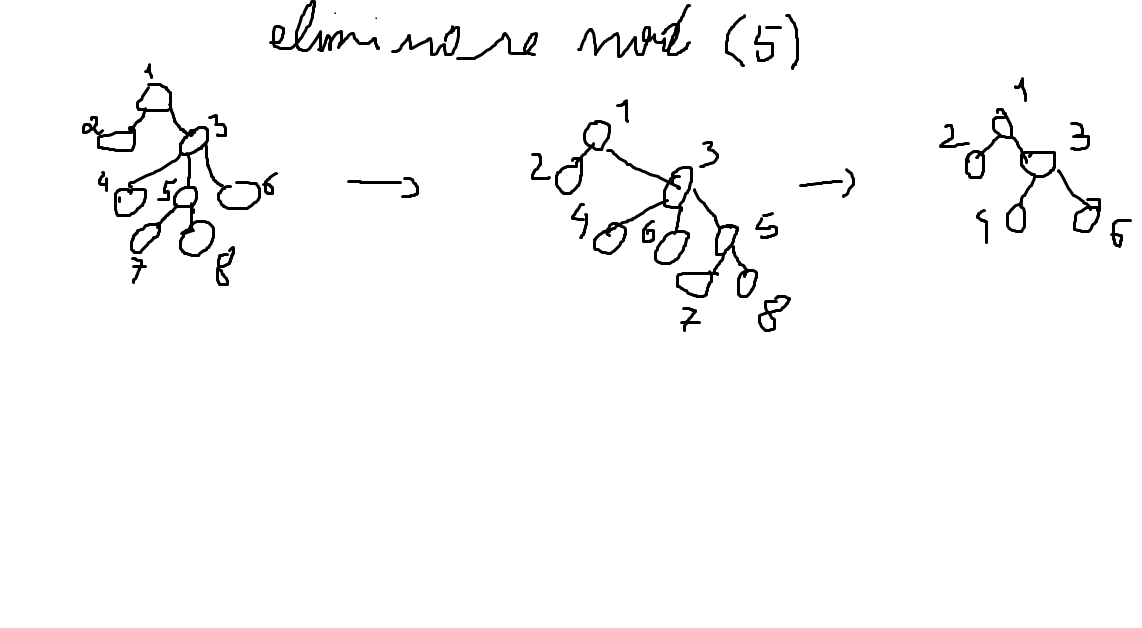 eliminare nod (5)
1
2 3
4 5 6
7 8
1
2 3
4 6 5
7 8
1
2 3
4 6